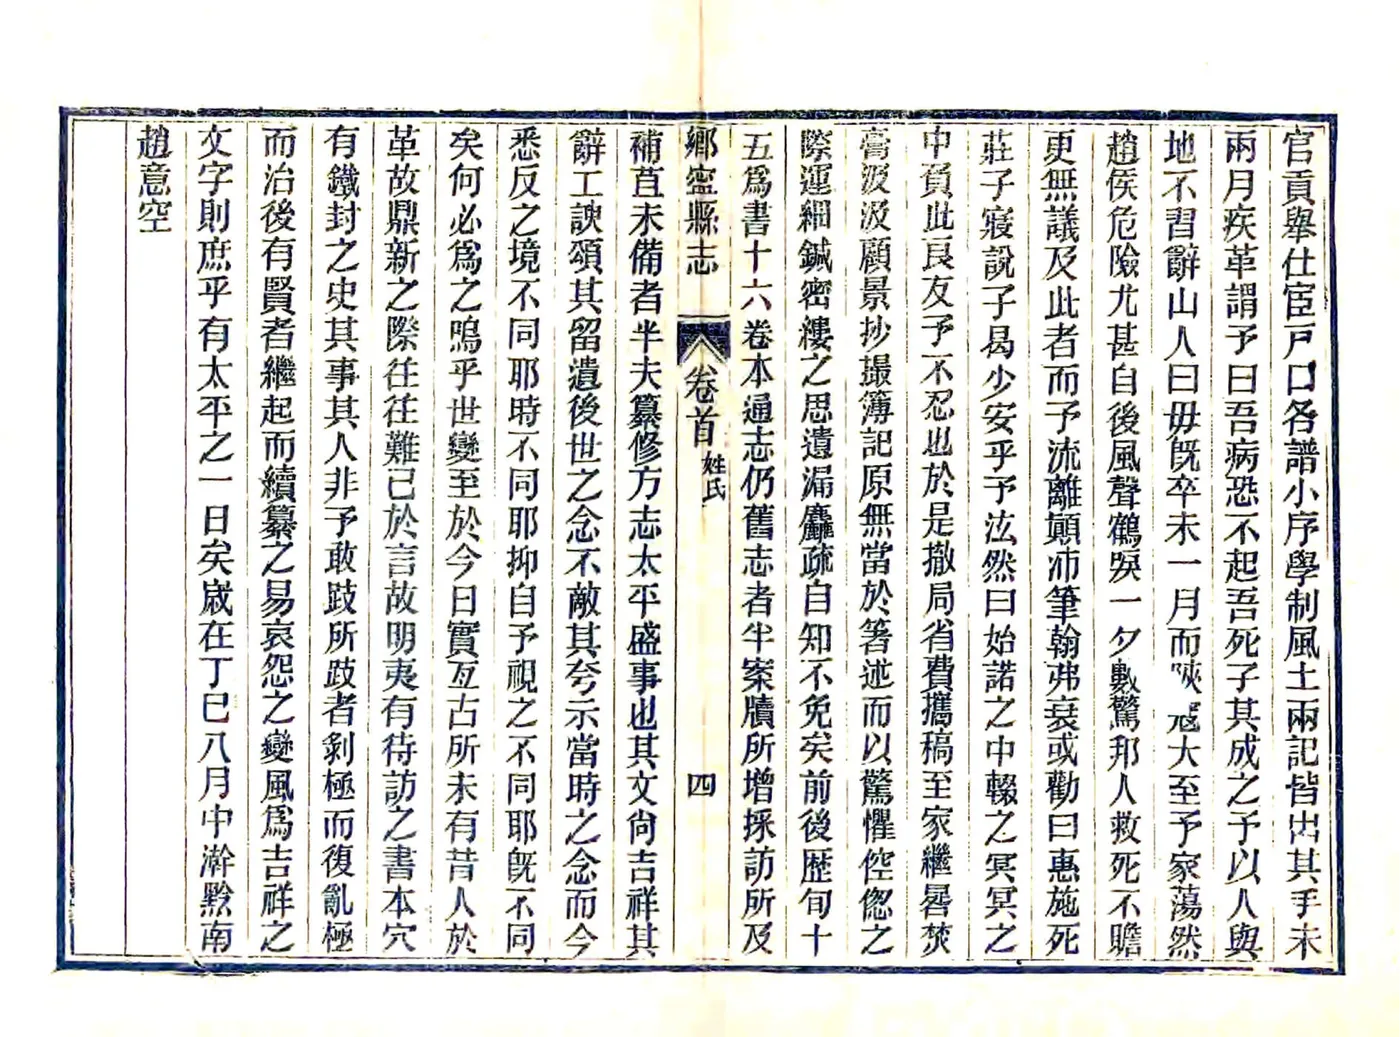 官貢舉仕宦戸口各譜小序學制風土兩記皆出其手未
兩月疾革謂予曰吾病恐不起吾死子其成之予以人與
地不習辭山人曰毋旣卒未一月而陝寇大至予家蕩然
趙侯危險尤甚自後風聲鶴淚一夕數驚邦人救死不贍
更無議及此者而予流離顚沛筆翰弗衰或勸曰惠施死
莊子寢說子曷少安乎予泫然曰始諾之中輟之冥冥之
中負此良友予不忍也於是撤局省費攜稿至家繼晷焚
膏汲汲顧景抄撮簿記原無當於箸述而以驚懼倥偬之
際運綱鍼密縷之思遺漏麤疏自知不免矣前後歷旬十
五爲書十六卷本通志仍舊志者半案牘所增採訪所及
鄉寧縣志 卷首 姓氏 四
補苴未備者半夫纂修方志太平盛事也其文尙吉祥其
辭工諛頌其留遺後世之念不敵其夸示當時之念而今
悉反之境不同耶時不同耶抑自予視之不同耶旣不同
矣何必爲之嗚乎世變至於今日實亙古所未有昔人於
革故鼎新之際往往難已於言故明夷有待訪之書本穴
有鐵封之史其事其人非予敢跂所跂者剝極而復亂極
而治後有賢者繼起而續纂之易哀怨之變風爲吉祥之
文字則庶乎有太平之一日矣歲在丁巳八月中澣黔南
趙意空